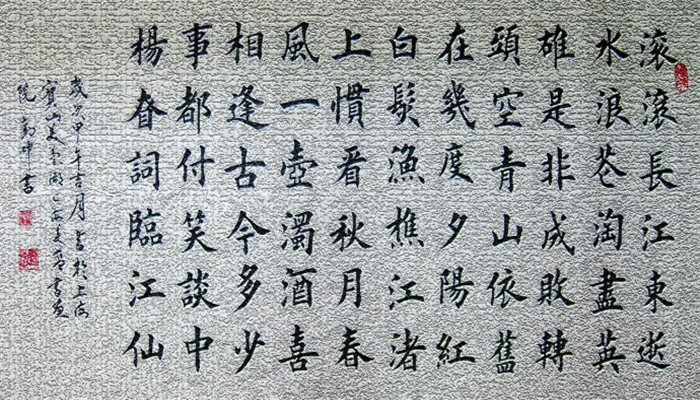 滚滚長江東逝
水浪花淘盡英
雄是非成敗轉
頭空青山依舊
在幾度夕陽紅
白髮漁樵江渚
上慣看秋月春
風一壺濁酒喜
相逢古今多少
事都付笑談中
楊眘詞臨江仙
歲次甲午吉月書於上海
寶山美蘭湖
書